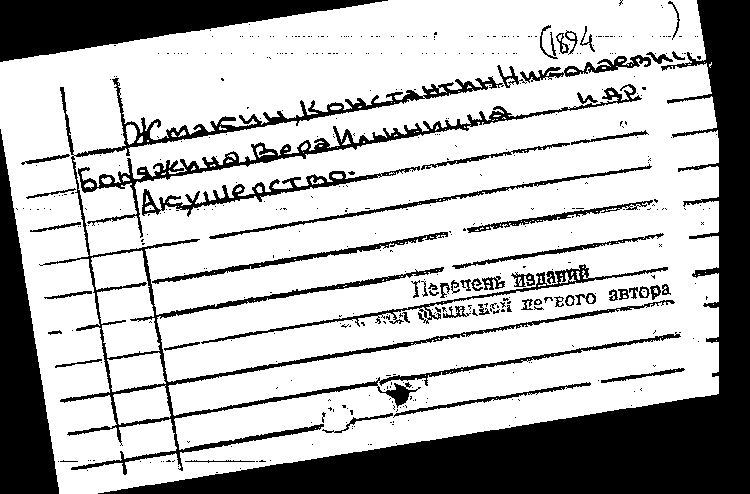 (1894 )
Жмакин, Константин Николаевич.
Бодяжина, Вера Ильинична и др.
Акушерство.
Перечень изданий
под фамилией первого автора